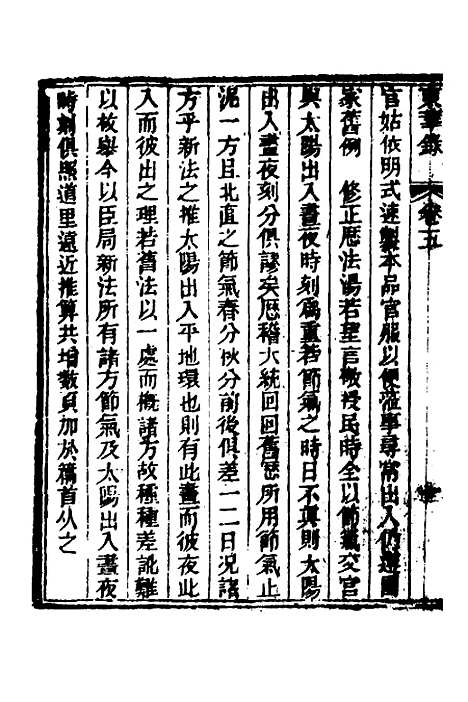 東華錄 卷五
官姑依明式速製本品官服以便蒞事尋常出入仍遵國
家舊例　修正厯法湯若望言敬授民時全以節氣交宮
與太陽出入晝夜時刻為重若節氣之時日不眞則太陽
出入晝夜刻分俱謬矣厯稽大統回回舊厯所用節氣止
泥一方且北直之節氣春分秋分前後俱差一二日况諸
方乎新法之推太陽出入平地環也則有此晝而彼夜此
入而彼出之理若舊法以一處而概諸方故種種差訛難
以枚舉今以臣局新法所有諸方節氣及太陽出入晝夜
時刻俱照道里遠近推算共增數頁加於篇首从之